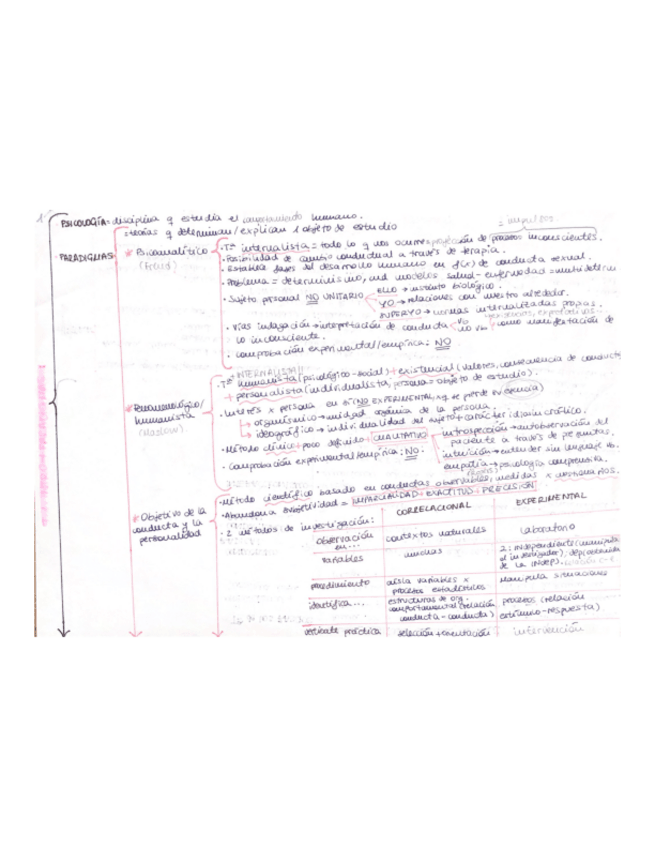 PSICOLOGÍA = disciplina q estudia el comportamiento humano.
= teorías q determinan/explican 1 objeto de estudio
PARADIGMAS
* Psicoanalítico
(Freud)
= impulsos
· Tª internalista = todo lo q nos ocurre proyección de procesos inconscientes.
· Posibilidad de cambio conductual a través de terapia.
· Establece fases del desarrollo humano en f(x) de conducta sexual.
· Problema = determinismo, md modelos salud-enfermedad = multideterm
· Sujeto personal NO UNITARIO
ELLO → instinto biológico.
YO → relaciones con nuestro alrededor.
SUPERYO → normas internalizadas propias.
· Vías indagación → interpretación de conducta como manifestación de
lo inconsciente.
· comprobación experimental/empírica: NO
* Fenomenológico/
humanista
(Maslow)
INTERNALISTA!!
· Tª humanista (psicológico-social) + existencial (valores, consecuencia de conducta
+ personalista (individualista, persona = objeto de estudio).
· Interés x persona en sí (NO EXPERIMENTAL xq se pierde esencia)
→ organísmico → unidad orgánica de la persona.
→ ideográfico → individualidad del sujeto + carácter idiosincrático.
· Método clínico + poco definido + CUALITATIVO
introspección → autobservación del
paciente a través de preguntas.
intuición → entender sin lenguaje vb.
empatía → psicología comprensiva.
· Comprobación experimental/empírica: NO.
* Objetivo de la
conducta y la
personalidad
· Método científico basado en conductas observables, medidas x cuestionarios.
· Abandona subjetividad = IMPARCIALIDAD + EXACTITUD + PRECISIÓN
· 2 métodos de investigación:
CORRELACIONAL EXPERIMENTAL
observación en... contextos naturales laboratorio
variables muchas 2: INdependiente (manipula
el investigador), dep (obtenida
de la INdep).
procedimiento aísla variables x
procesos estadísticos Manipula situaciones
identifica... estructuras de org.
comportamental (relación
conducta-conducta) procesos (relación
estímulo-respuesta)
vertiente práctica selección + orientación intervención